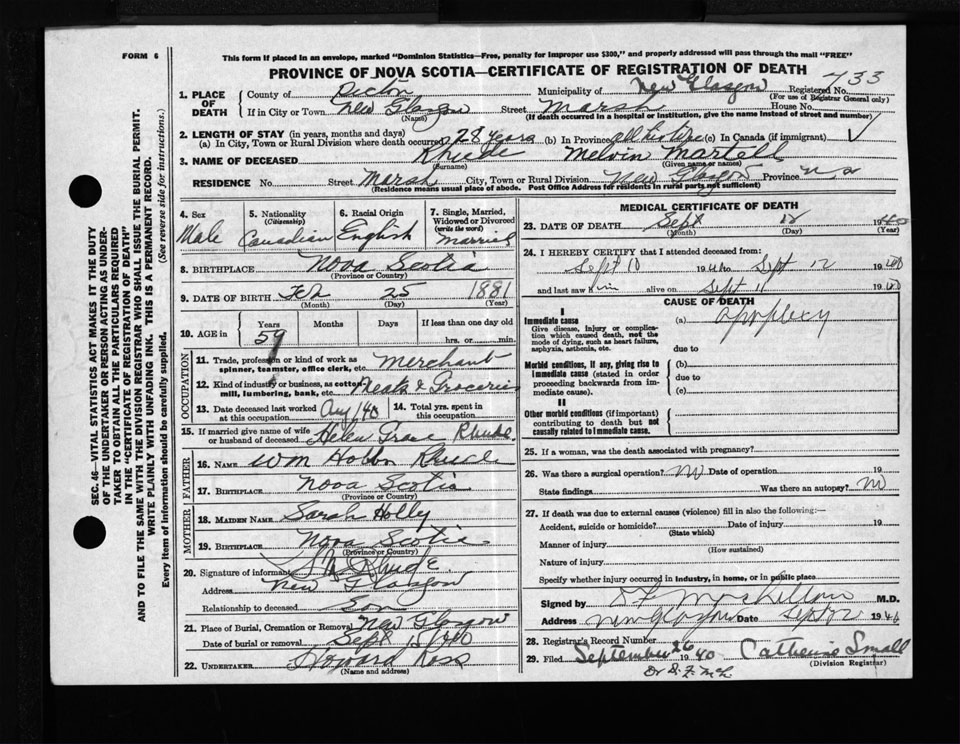 FORM 6
This form if placed in an envelope, marked "Dominion Statistics—Free, penalty for improper use $300," and properly addressed will pass through the mail "FREE"
PROVINCE OF NOVA SCOTIA—CERTIFICATE OF REGISTRATION OF DEATH
733
1. PLACE OF DEATH
County of Pictou Municipality of New Glasgow Registered No.
(For use of Registrar General only)
If in City or Town New Glasgow Street Marsh House No.
(Name) (If death occurred in a hospital or institution, give the name instead of street and number)
2. LENGTH OF STAY (in years, months and days)
(a) In City, Town or Rural Division where death occurred 28 years (b) In Province all his life (c) In Canada (if immigrant)
3. NAME OF DECEASED Rhude Melvin Martell
(Surname) (Given name or names)
RESIDENCE No. Street Marsh City, Town or Rural Division New Glasgow Province N S
(Residence means usual place of abode. Post Office Address for residents in rural parts not sufficient)
4. Sex Male
5. Nationality (Citizenship) Canadian
6. Racial Origin English
7. Single, Married, Widowed or Divorced (write the word) Married
8. BIRTHPLACE Nova Scotia
(Province or Country)
9. DATE OF BIRTH Feb 25 1881
(Month) (Day) (Year)
10. AGE in Years Months Days If less than one day old
59 hrs. or min.
OCCUPATION
11. Trade, profession or kind of work as spinner, teamster, office clerk, etc. Merchant
12. Kind of industry or business, as cotton mill, lumbering, bank, etc. Meats & Groceries
13. Date deceased last worked at this occupation Aug/40
14. Total yrs. spent in this occupation
15. If married give name of wife or husband of deceased Helen Grace Rhude
FATHER
16. NAME Wm Rhude
17. BIRTHPLACE Nova Scotia
(Province or Country)
MOTHER
18. MAIDEN NAME Sarah Holly
19. BIRTHPLACE Nova Scotia
(Province or Country)
20. Signature of informant Rhude
Address New Glasgow
Relationship to deceased Son
21. Place of Burial, Cremation or Removal New Glasgow
Date of burial or removal Sept 15 1940
22. UNDERTAKER Howard Ross
(Name and address)
MEDICAL CERTIFICATE OF DEATH
23. DATE OF DEATH Sept 12 1940
(Month) (Day) (Year)
24. I HEREBY CERTIFY that I attended deceased from:
Sept 10 1940 to Sept 12 1940
and last saw him alive on Sept 11 1940
CAUSE OF DEATH
I
Immediate cause (a) Apoplexy
Give disease, injury or complication which caused death, not the mode of dying, such as heart failure, asphyxia, asthenia, etc.
due to
Morbid conditions, if any, giving rise to immediate cause (stated in order proceeding backwards from immediate cause).
(b)
due to
(c)
II
Other morbid conditions (if important) contributing to death but not causally related to immediate cause.
25. If a woman, was the death associated with pregnancy?
26. Was there a surgical operation? no Date of operation 19
State findings Was there an autopsy? no
27. If death was due to external causes (violence) fill in also the following:—
Accident, suicide or homicide? Date of injury 19
(State which)
Manner of injury
(How sustained)
Nature of injury
Specify whether injury occurred in industry, in home, or in public place
Signed by M.D.
Address New Glasgow Date Sept 12 1940
28. Registrar's Record Number
29. Filed September 26 1940 Catherine Small
(Division Registrar)
SEC. 46—VITAL STATISTICS ACT MAKES IT THE DUTY
OF THE UNDERTAKER OR PERSON ACTING AS UNDERTAKER
TO OBTAIN ALL THE PARTICULARS REQUIRED
IN THE "CERTIFICATE OF REGISTRATION OF DEATH"
AND TO FILE THE SAME WITH THE DIVISION REGISTRAR WHO SHALL ISSUE THE BURIAL PERMIT.
WRITE PLAINLY WITH UNFADING INK. THIS IS A PERMANENT RECORD.
Every item of information should be carefully supplied. (See reverse side for instructions.)